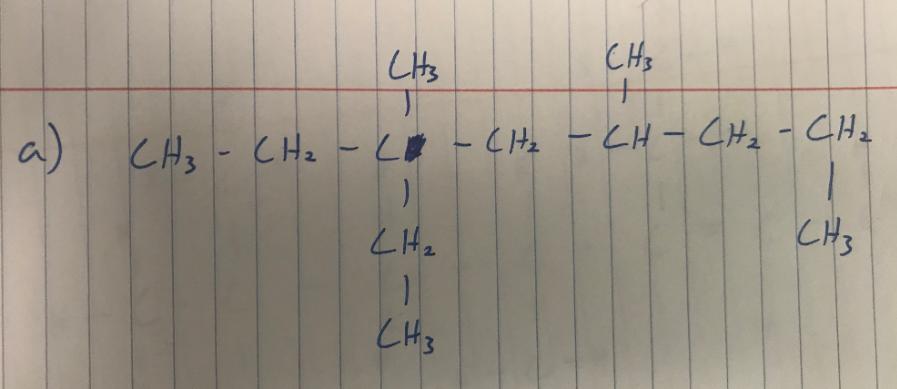 CH3 CH3
a) CH3 - CH2 - C - CH2 - CH - CH2 - CH2
CH2 CH3
CH3